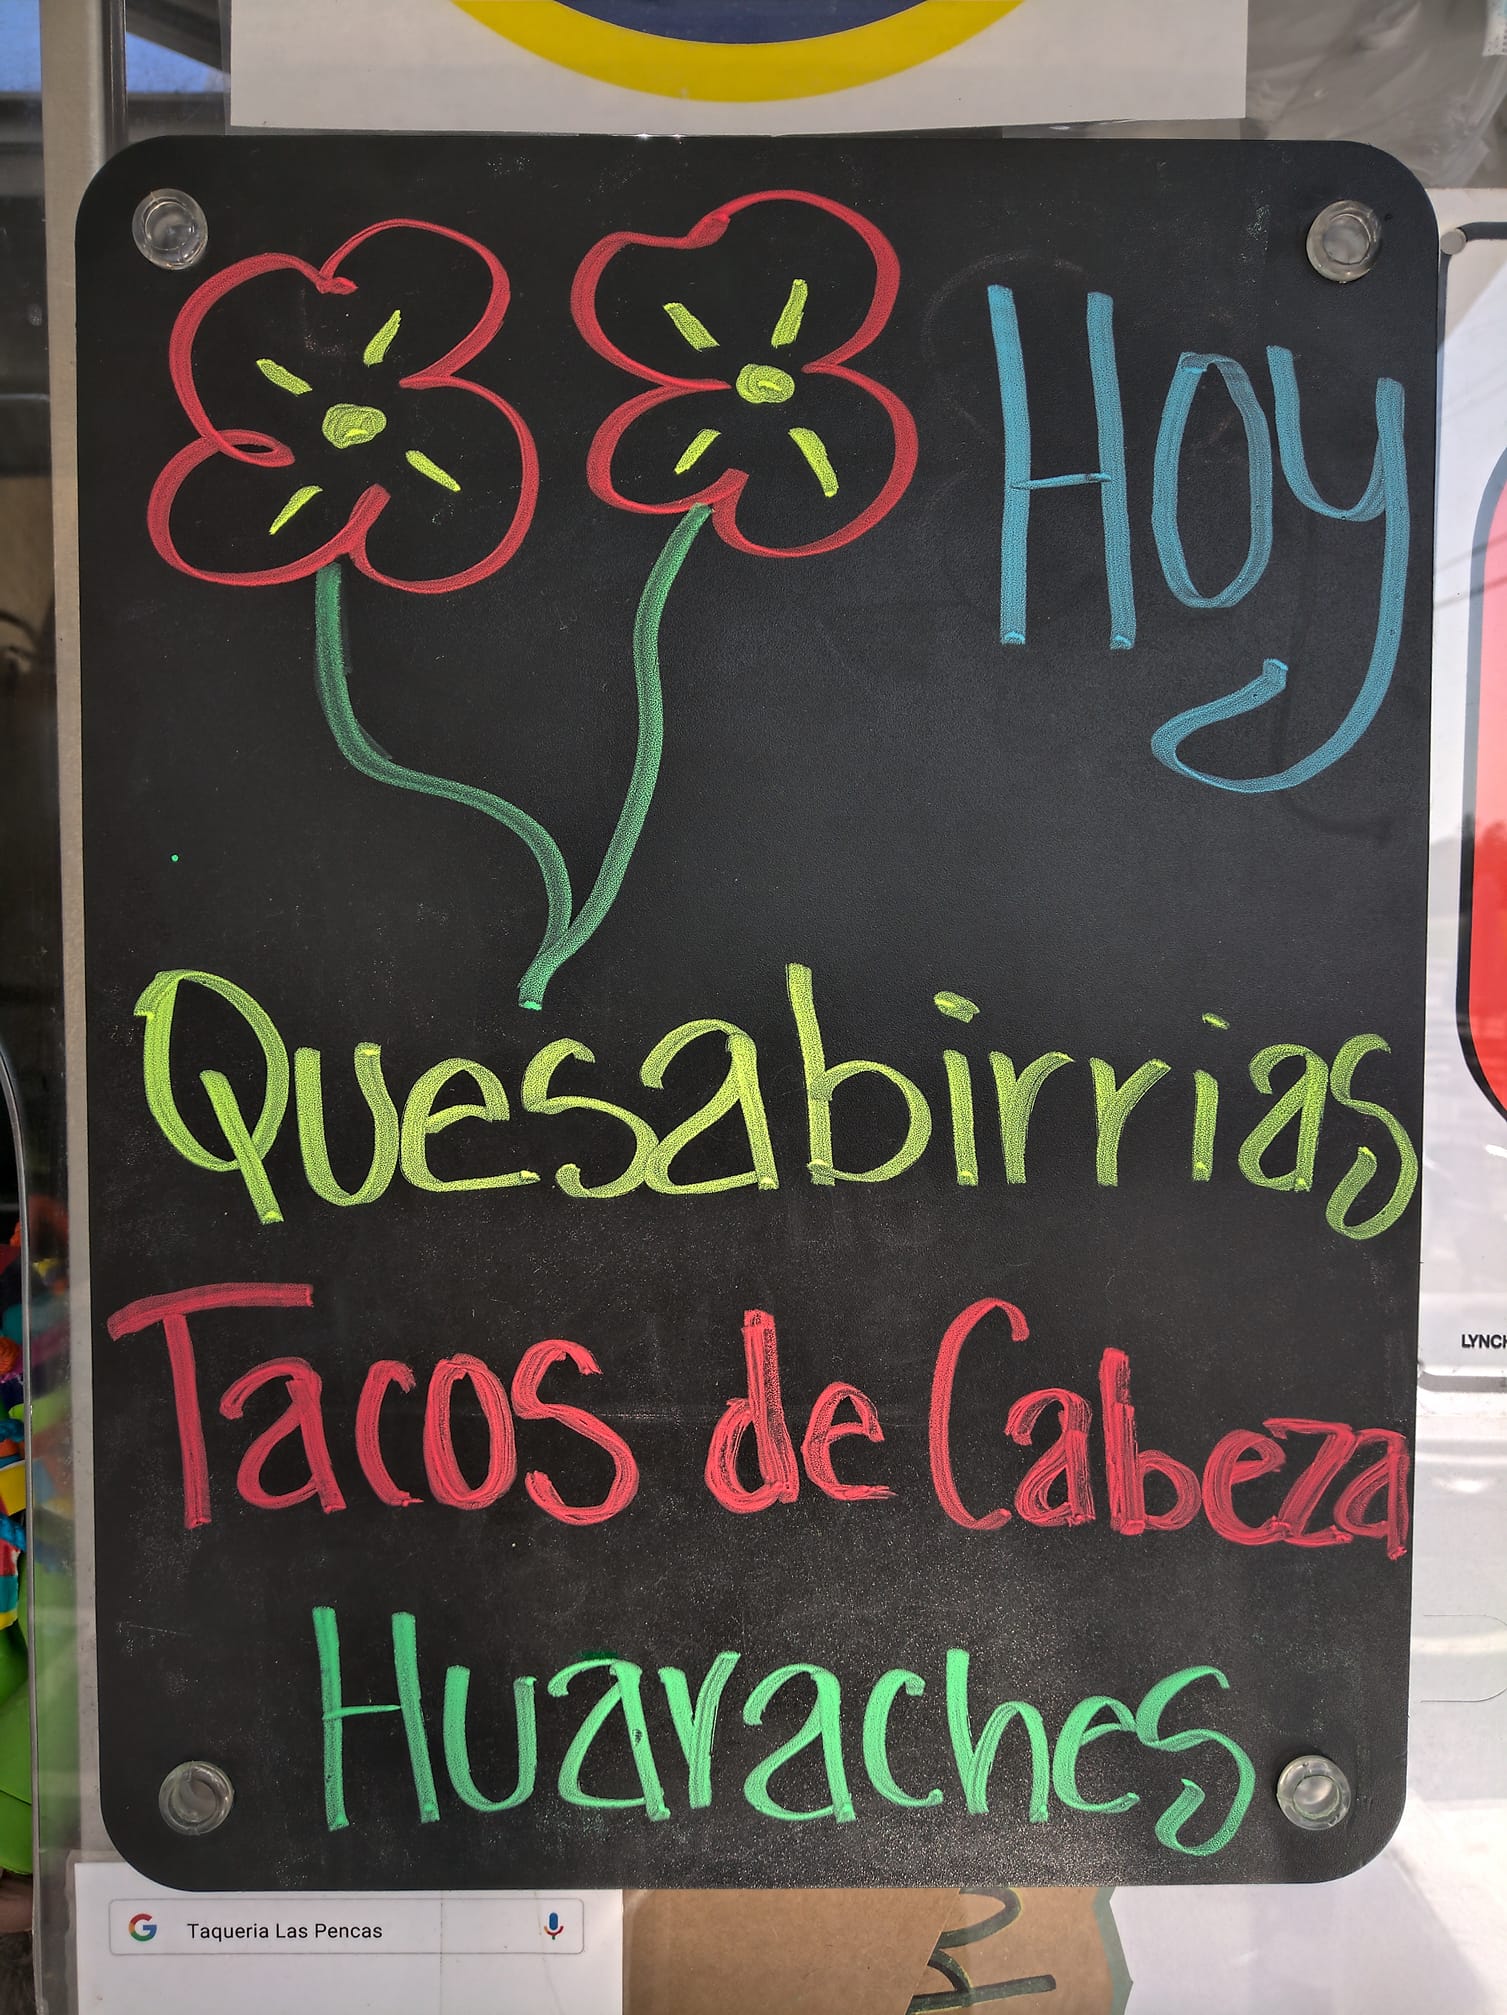 Hoy
Quesabirrias
Tacos de Cabeza
Huaraches
LYNCH
Taqueria Las Pencas